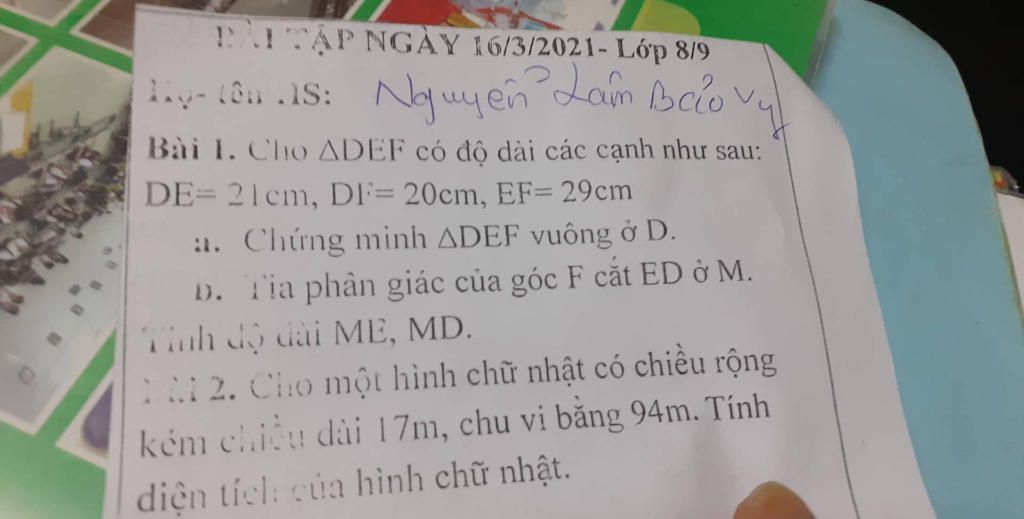 BÀI TẬP NGÀY 16/3/2021- Lớp 8/9
Họ- tên HS: Nguyễn Lâm Bảo Vy
Bài 1. Cho ΔDEF có độ dài các cạnh như sau:
DE= 21cm, DF= 20cm, EF= 29cm
a. Chứng minh ΔDEF vuông ở D.
b. Tia phân giác của góc F cắt ED ở M.
Tính độ dài ME, MD.
Bài 2. Cho một hình chữ nhật có chiều rộng
kém chiều dài 17m, chu vi bằng 94m. Tính
diện tích của hình chữ nhật.